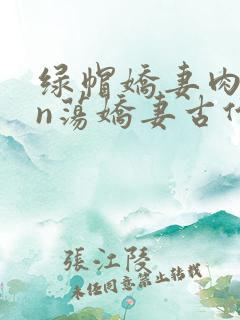 绿帽嬌妻肉
n蕩嬌妻古代
張江陵
未经同意禁止转载